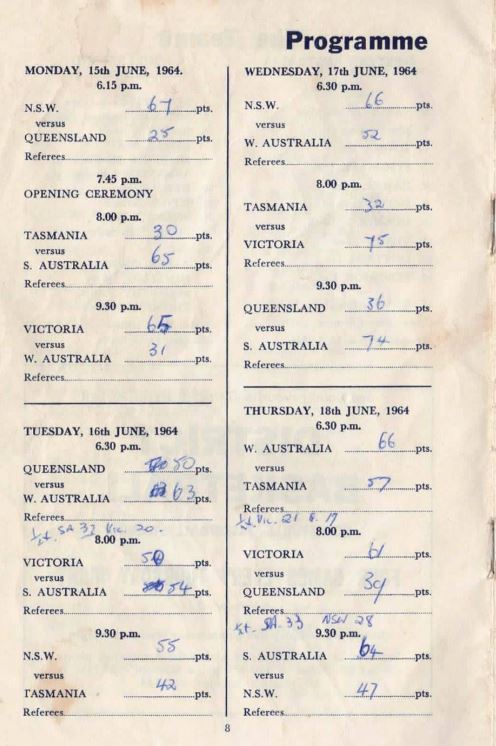 Programme
MONDAY, 15th JUNE, 1964.
6.15 p.m.
N.S.W. 67 pts.
versus
QUEENSLAND 25 pts.
Referees
7.45 p.m.
OPENING CEREMONY
8.00 p.m.
TASMANIA 30 pts.
versus
S. AUSTRALIA 65 pts.
Referees
9.30 p.m.
VICTORIA 65 pts.
versus
W. AUSTRALIA 31 pts.
Referees
TUESDAY, 16th JUNE, 1964
6.30 p.m.
QUEENSLAND 50 pts.
versus
W. AUSTRALIA 63 pts.
Referees
½t. SA 33 Vic. 20.
8.00 p.m.
VICTORIA 50 pts.
versus
S. AUSTRALIA 54 pts.
Referees
9.30 p.m.
N.S.W. 55 pts.
versus
TASMANIA 42 pts.
Referees
WEDNESDAY, 17th JUNE, 1964
6.30 p.m.
N.S.W. 66 pts.
versus
W. AUSTRALIA 52 pts.
Referees
8.00 p.m.
TASMANIA 32 pts.
versus
VICTORIA 75 pts.
Referees
9.30 p.m.
QUEENSLAND 36 pts.
versus
S. AUSTRALIA 74 pts.
Referees
THURSDAY, 18th JUNE, 1964
6.30 p.m.
W. AUSTRALIA 66 pts.
versus
TASMANIA 57 pts.
Referees
½t. Vic. 21 17
8.00 p.m.
VICTORIA 61 pts.
versus
QUEENSLAND pts.
Referees
½t. SA. 33 NSW 28
9.30 p.m.
S. AUSTRALIA 64 pts.
versus
N.S.W. 47 pts.
Referees
8